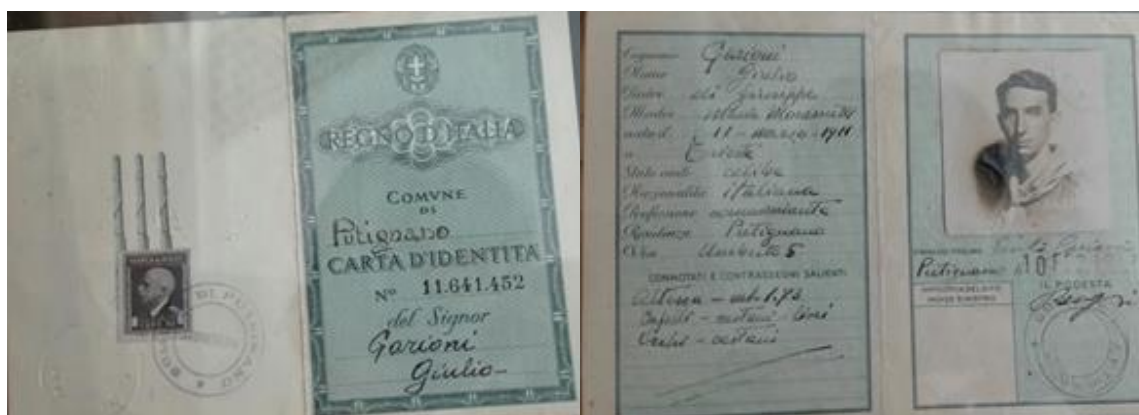 COMUNE DI PUTIGNANO
REGNO D'ITALIA
COMVNE
DI
Putignano
CARTA D'IDENTITÀ
Nº 11.641.452
del Signor
Garioni
Giulio
Cognome Garioni
Nome Giulio
Padre di Giuseppe
Madre Maria
nato il 11 - marzo - 1911
a Trieste
Stato civile celibe
Nazionalità italiana
Professione commerciante
Residenza Putignano
Via Umberto 5
CONNOTATI E CONTRASSEGNI SALIENTI
Altezza - mt. 1.73
Capelli - castani - lisci
Occhi - castani
Giulio Garioni
Putignano
IL PODESTÀ
IMPRONTA DEL DITO
INDICE SINISTRO